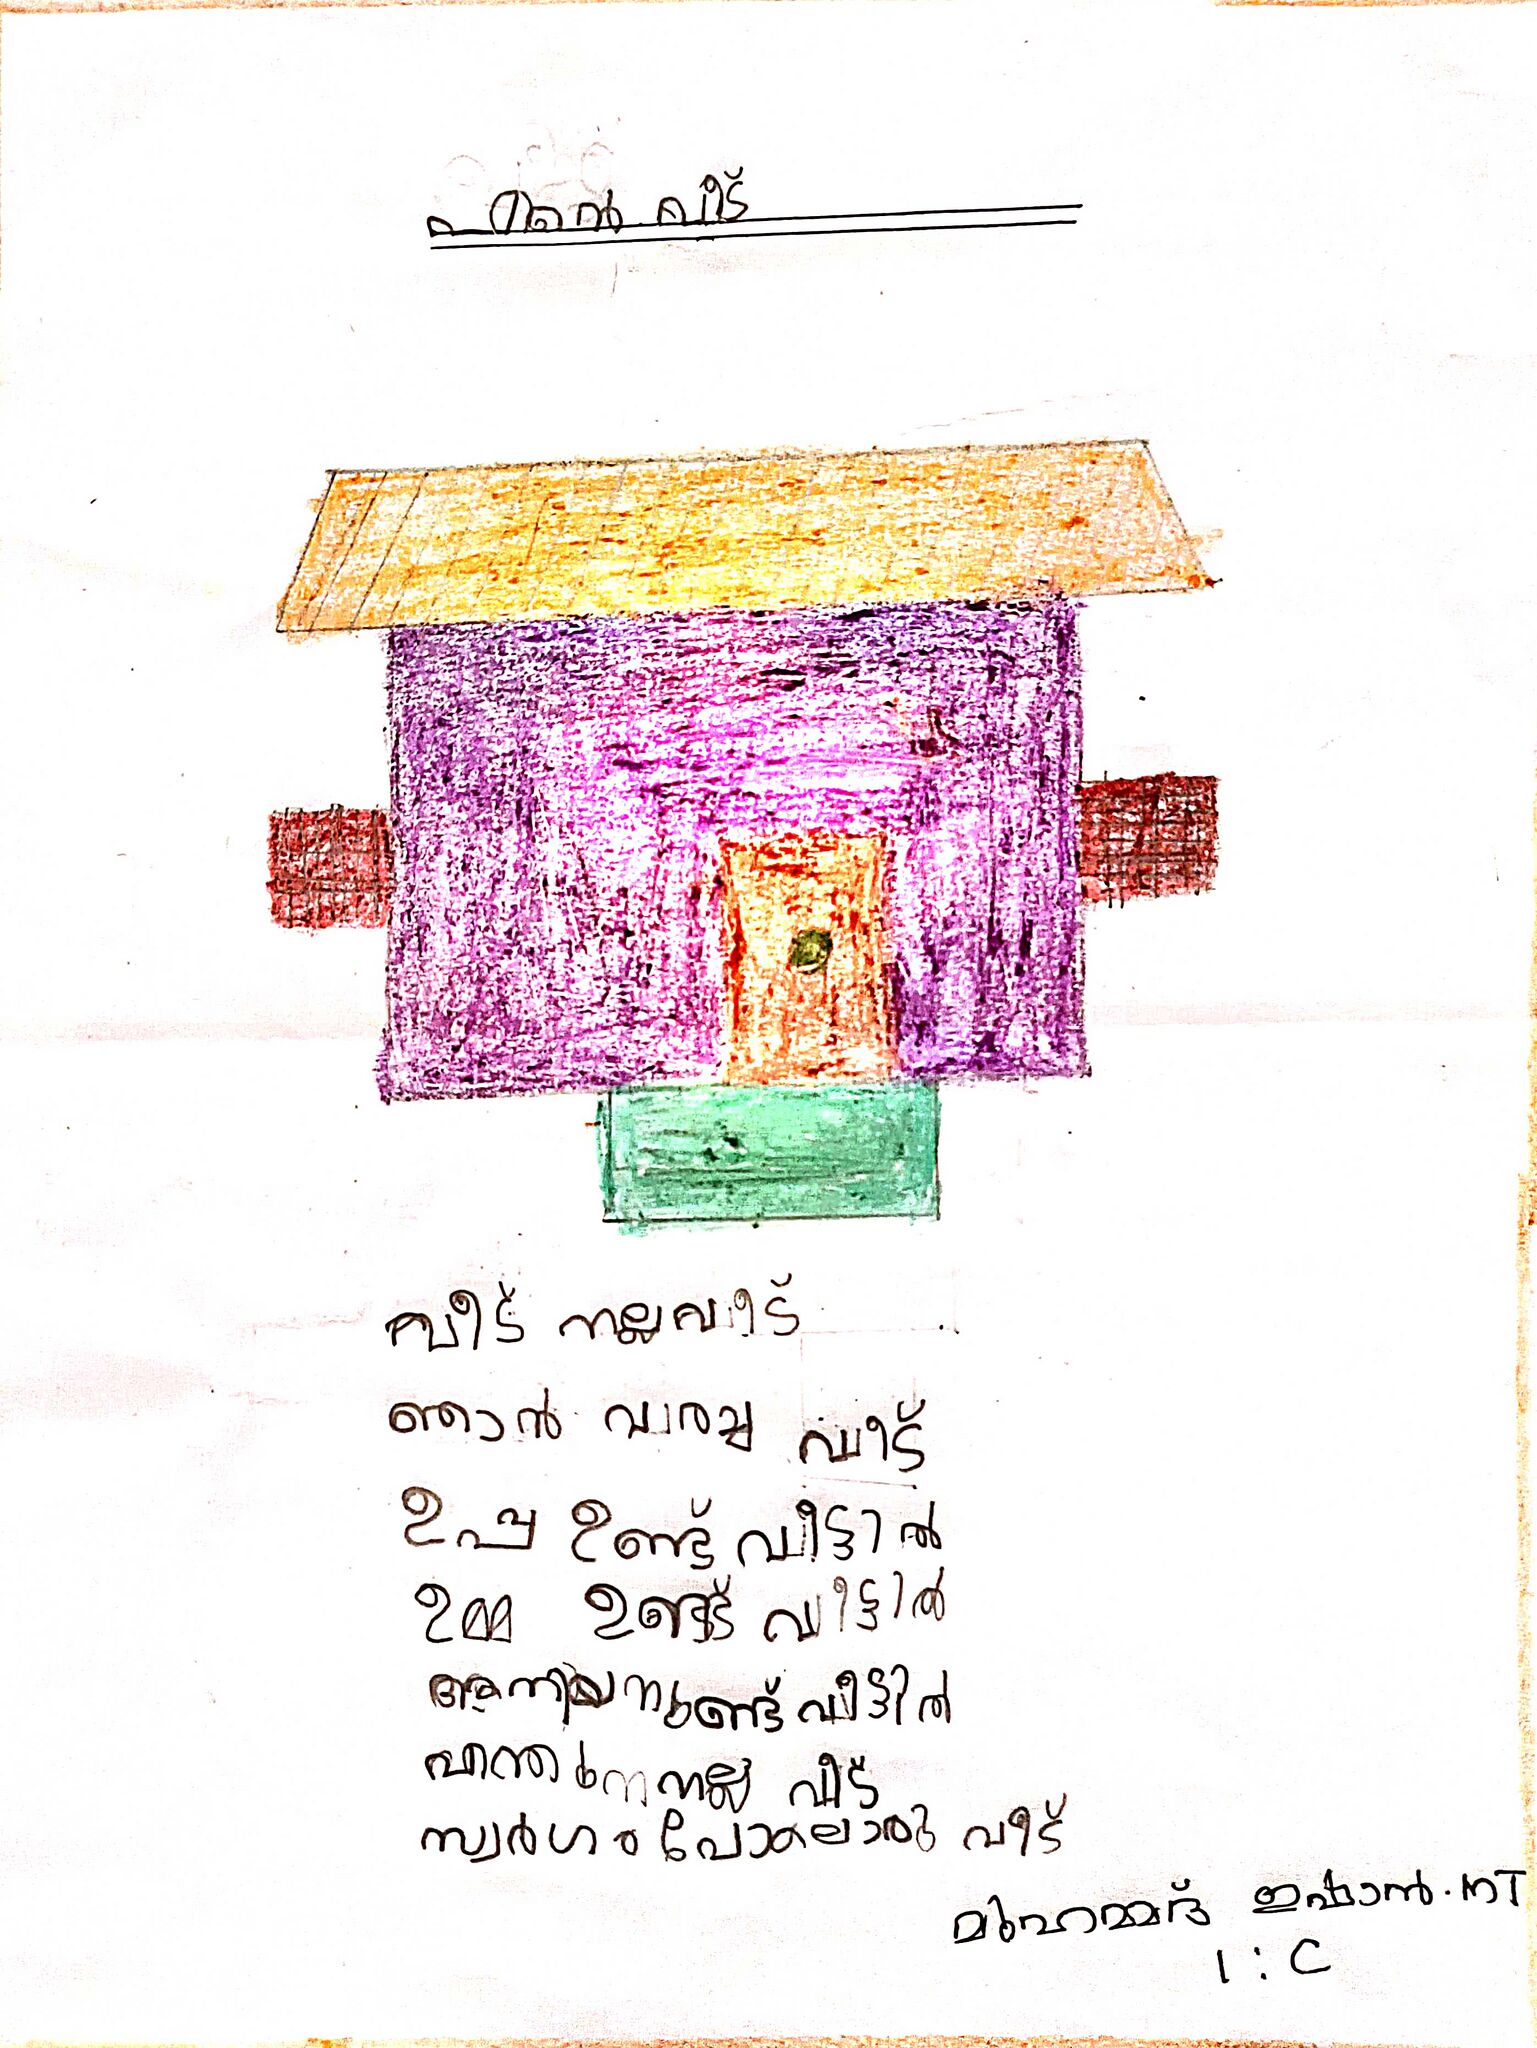 എൻ്റെ വീട്
വീട് നല്ലവീട്
ഞാൻ വരച്ച വീട്
ഉപ്പ ഉണ്ട് വീട്ടിൽ
ഉമ്മ ഉണ്ട് വീട്ടിൽ
അനിയനുണ്ട് വീട്ടിൽ
എന്തു നല്ല വീട്
സ്വർഗം പോലൊരു വീട്
മുഹമ്മദ് ഇഷാൻ.MT
1:C